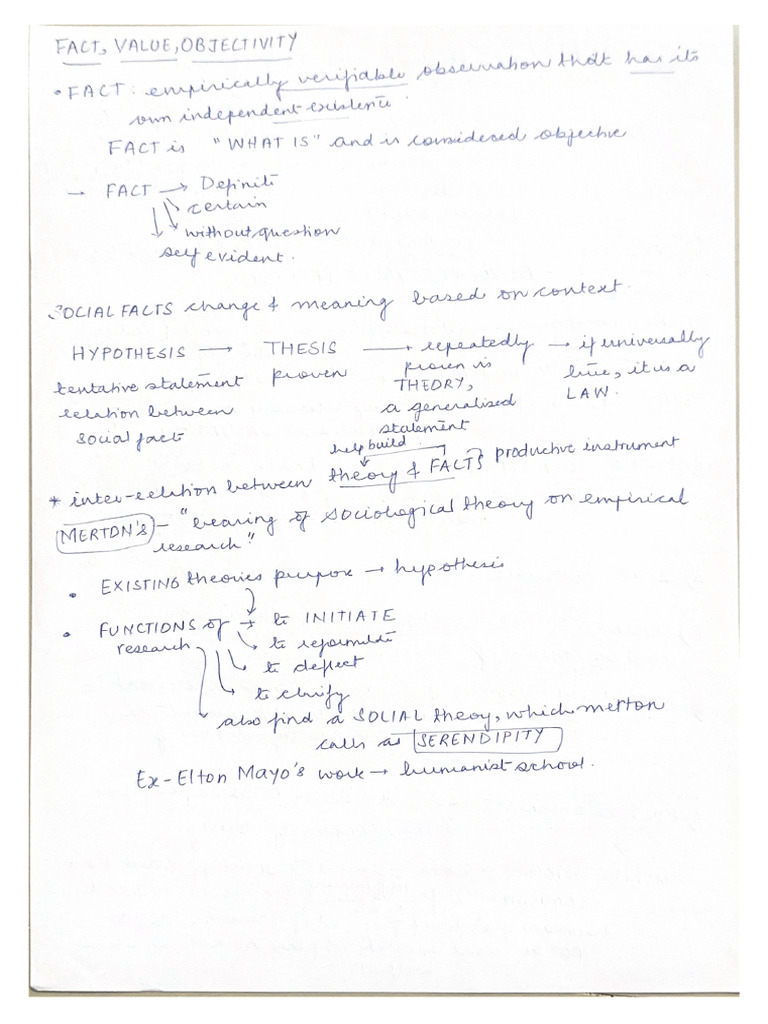 FACT, VALUE, OBJECTIVITY
• FACT: empirically verifiable observation that has its
own independent existence.
FACT is "WHAT IS" and is considered objective
→ FACT → Definite
certain
without question
self evident.
SOCIAL FACTS change & meaning based on context.
HYPOTHESIS → THESIS → repeatedly → if universally
tentative statement proven proven is true, it is a
relation between THEORY, LAW.
social fact a generalised
statement
help build
* inter-relation between theory & FACTS → productive instrument
MERTON'S - "bearing of sociological theory on empirical
research"
• EXISTING theories purpose → hypothesis
• FUNCTIONS of → to INITIATE
research to reformulate
to deflect
to clarify
also find a SOCIAL theory, which merton
calls as SERENDIPITY
Ex- Elton Mayo's work → humanist school.